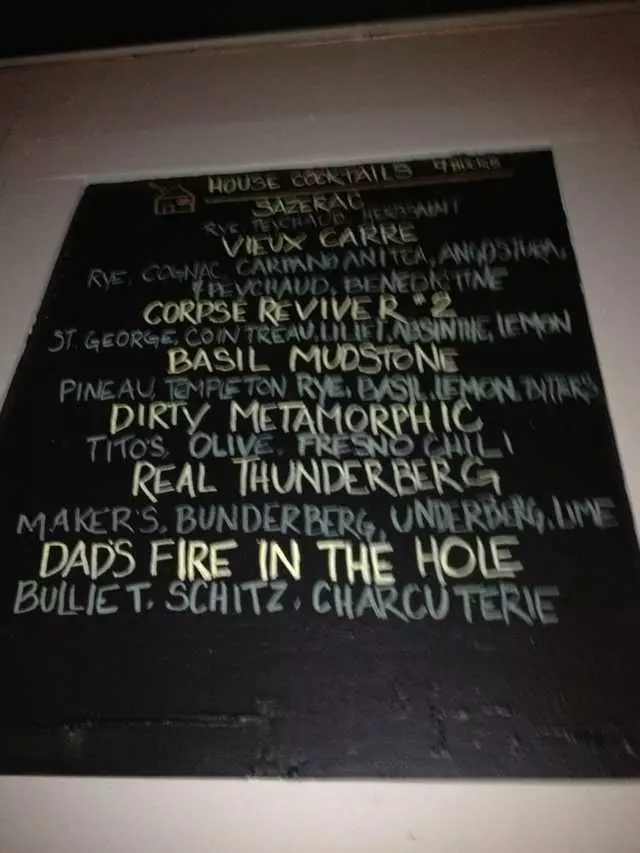 HOUSE COCKTAILS
SAZERAC
RYE, PEYCHAUD, HERBSAINT
VIEUX CARRE
RYE, COGNAC, CARPANO ANITCA, ANGOSTURA,
& PEYCHAUD, BENEDICTINE
CORPSE REVIVER #2
ST. GEORGE, COINTREAU, LILLET, ABSINTHE, LEMON
BASIL MUDSTONE
PINEAU, TEMPLETON RYE, BASIL, LEMON, BITTERS
DIRTY METAMORPHIC
TITO'S, OLIVE, FRESNO CHILI
REAL THUNDERBERG
MAKER'S, BUNDERBERG, UNDERBERG, LIME
DAD'S FIRE IN THE HOLE
BULLIET. SCHITZ. CHARCUTERIE